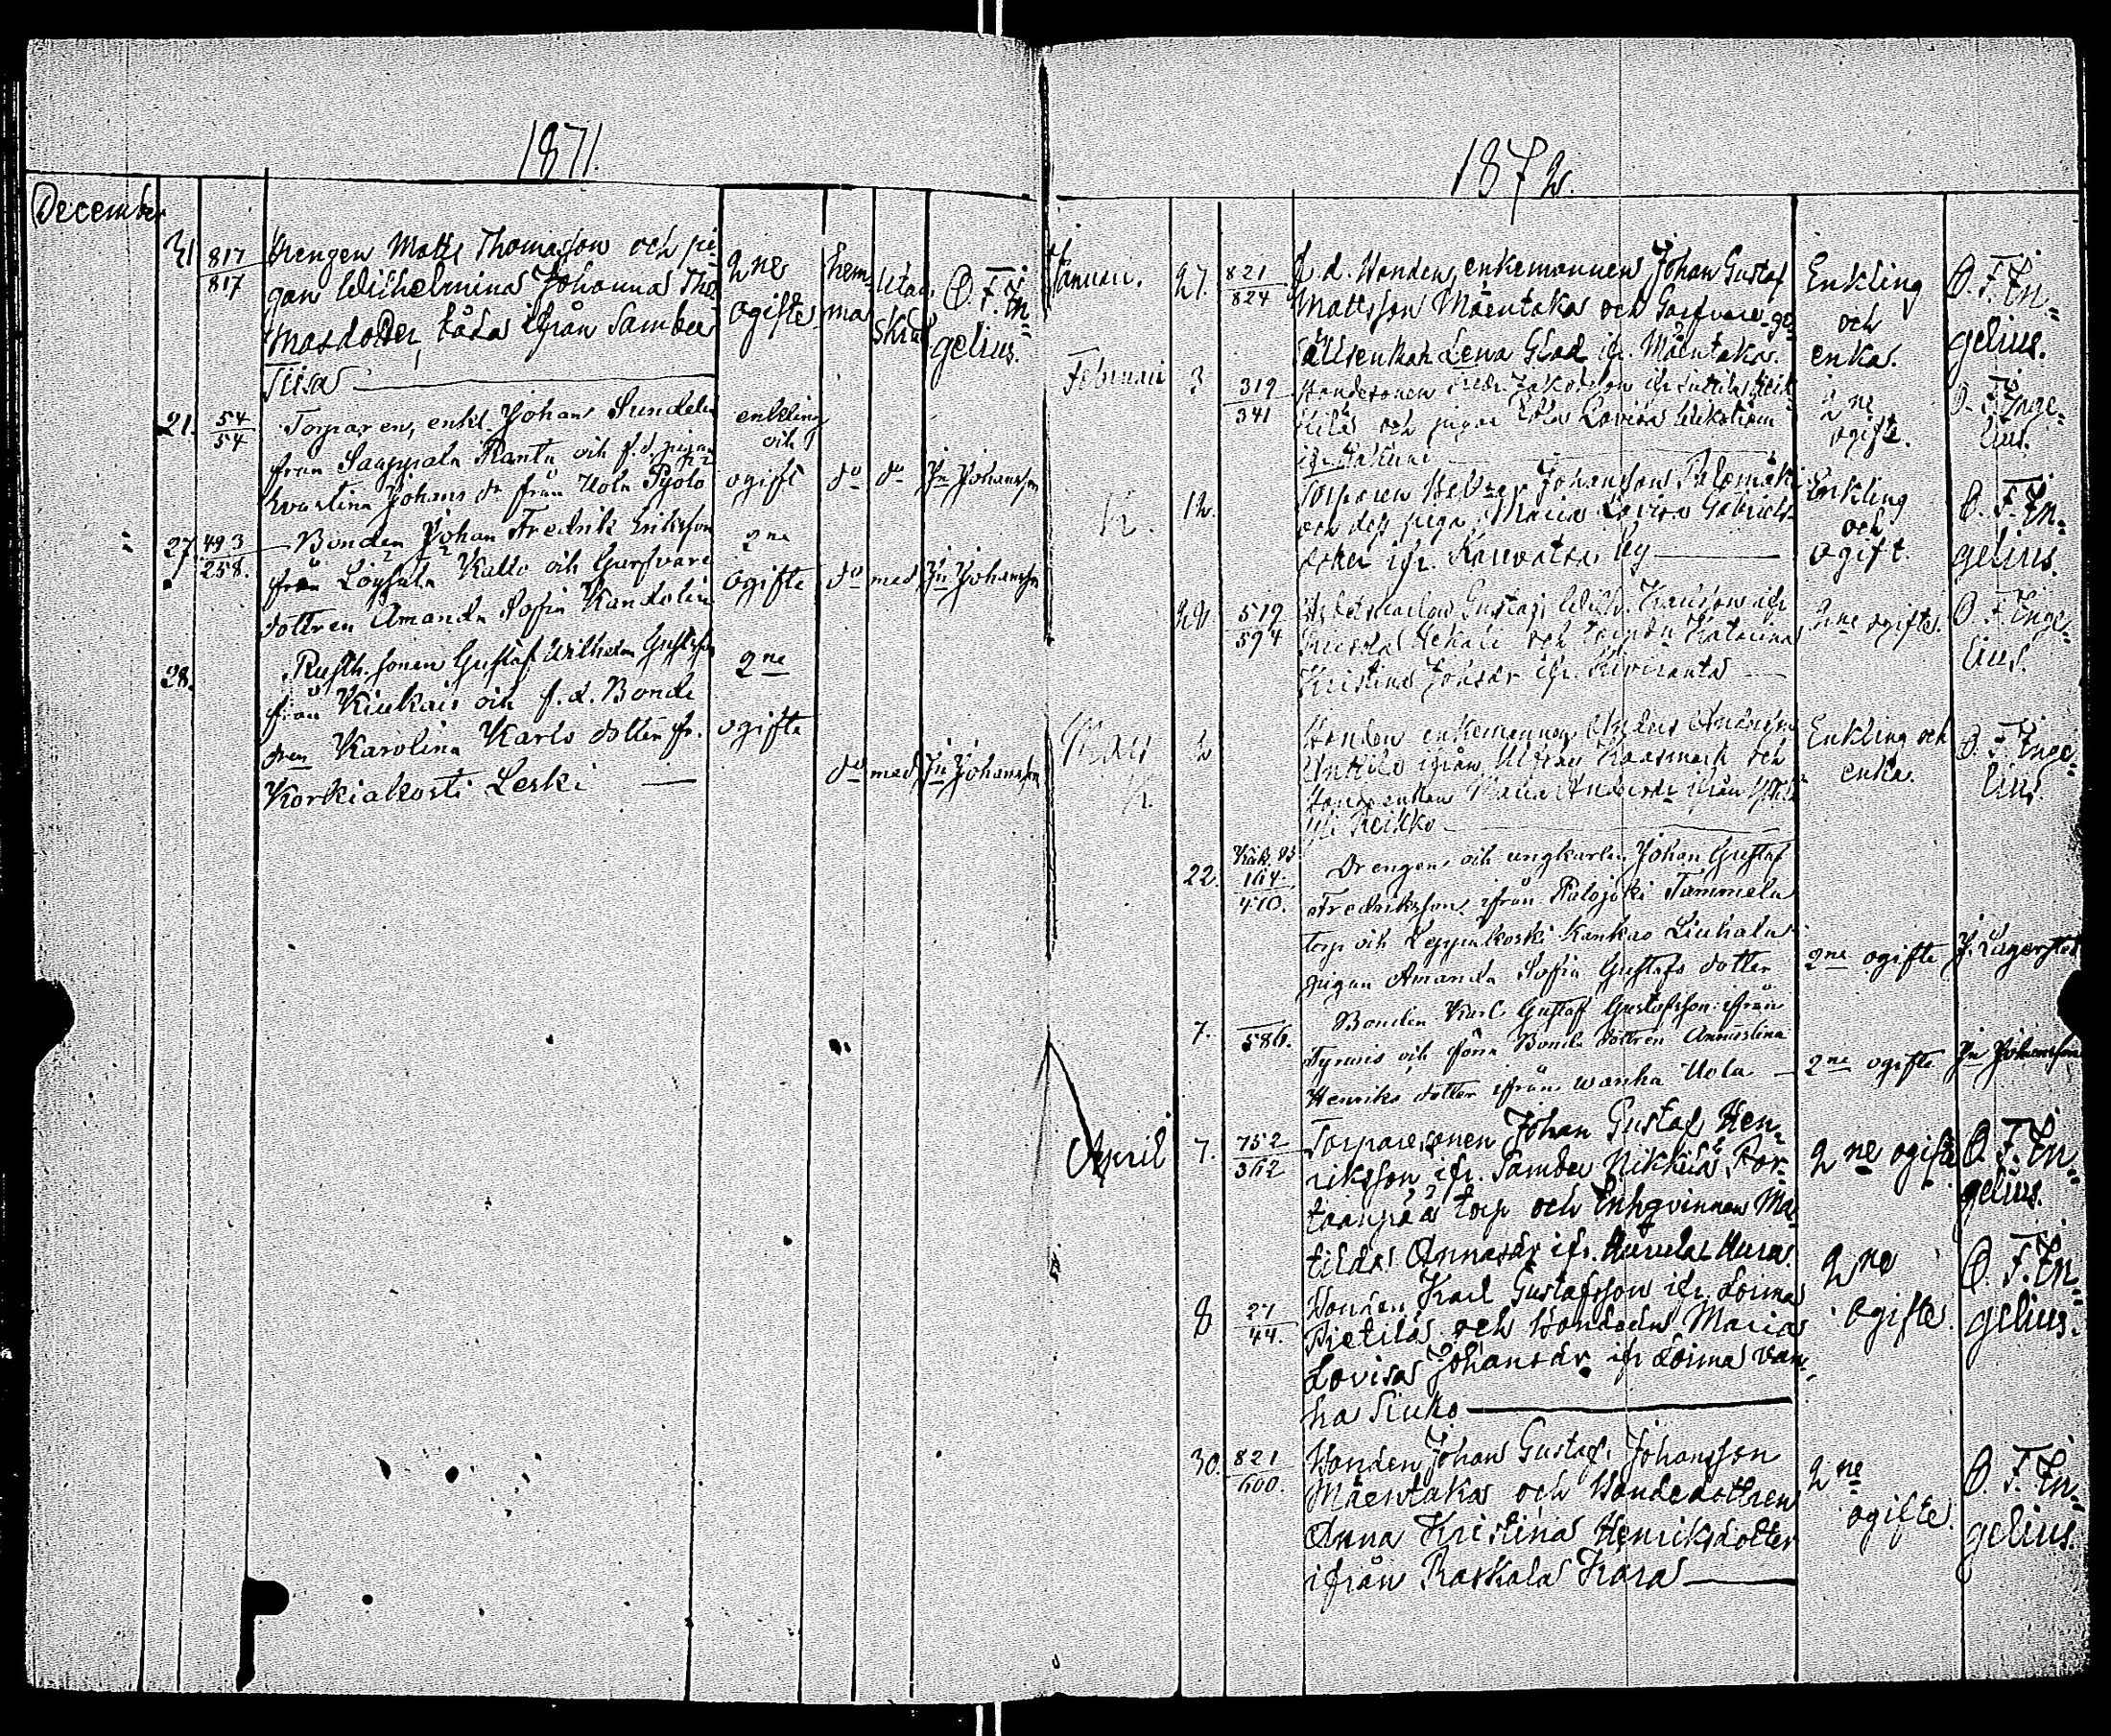 1871.
December
21 817/817 Drengen Matts Thomasson och pi-
gan Wilhelmina Johanna Tho-
masdotter, båda ifrån Sambu
Siisa
2ne ogifte hemma utan skrud O. F. Engelius.
21. 54/54 Torparen, enkl. Johan Sundelin
från Sauppala Rantu och f.d. pigan
Evastina Johans dr från Uola Pyolo
enkling och ogift do do Jn Johansson
27. 493/258. Bonden Johan Fredrik Eriksson
från Löyhala Kallo och Garfvare
dottren Amanda Sofia Kandolin
2ne ogifte do med Jn Johansson
28. Rusth. sonen Gustaf Wilhelm Gustafsson
från Kiukais och f. d. Bonde
dren Karolina Karls dotter fr.
Korkiakosti Leski
2ne ogifta do med Jn Johansson
1872.
Januari. 27. 821/824 F. d. Bonden, enkemannen Johan Gustaf
Mattsson Mäentaka och Garfvare-ge-
sällsenkan Lena Glad ifr. Mäentaka.
Enkling och enka. O. F. Engelius.
Februari 3 319/341 Bondesonen Fredr. Jakobsson ifr.
och pigan Eva Lovisa Wikström
2ne ogifte. O. F. Engelius.
12. Torparen Johansson Palomäki
och dess piga Maria Lovisa Gabriels-
dotter ifr. Kauvatsa by
Enkling och ogift. O. F. Engelius.
519/594 Gustaf Wilh. ifr
och Katarina
Kristina Johsdr ifr. Kiviranta
2ne ogifte. O. F. Engelius.
Mars 2 Bonden enkemannen Anders Andersson
Anttila ifrån Ulfsby Kaasmark och
Bondeenkan Maria Andersdr ifrån
Heikko
Enkling och enka. O. F. Engelius.
22. 164/410. Drengen och ungkarlen Johan Gustaf
Fredriksson ifrån Palojoki Tammela
torp och Leppäkoski Kankas Liuhala
pigan Amanda Sofia Gustafs dotter
2ne ogifte J. Lagerstedt
7. 586. Bonden Karl Gustaf Gustafsson ifrån
Tyrnis och förra Bonde dottren Annastina
Henriks dotter ifrån wanha Uola
2ne ogifte Jn Johansson
April 7. 752/362 Torparesonen Johan Gustaf Hen-
riksson ifr. Sambu Nikkilä Por-
taanpää torp och Inhqvinnan Ma-
tilda Annasdr ifr.
2ne ogifte O. F. Engelius.
8 27/44. Bonden Karl Gustafsson ifr. Loima
Pietilä och bondedn Maria
Lovisa Johansdr ifr Loima Van-
ha Siuko
2ne ogifte. O. F. Engelius.
30. 821/600. Bonden Johan Gustaf Johansson
Mäentaka och Bondedottren
Anna Kristina Henriksdotter
ifrån Raskala Kara
2ne ogifte. O. F. Engelius.